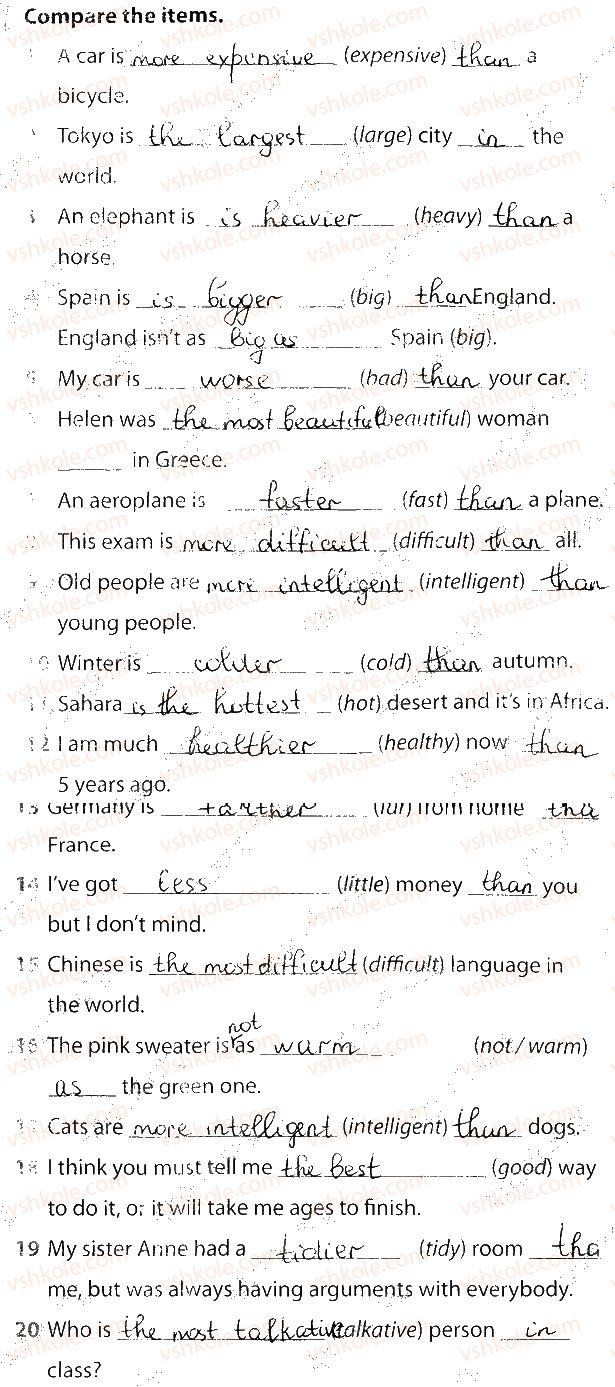 Compare the items.
A car is more expensive (expensive) than a
bicycle.
Tokyo is the largest (large) city in the
world.
An elephant is is heavier (heavy) than a
horse.
Spain is is bigger (big) than England.
England isn't as big as Spain (big).
My car is worse (bad) than your car.
Helen was the most beautiful (beautiful) woman
in Greece.
An aeroplane is faster (fast) than a plane.
This exam is more difficult (difficult) than all.
Old people are more intelligent (intelligent) than
young people.
10 Winter is colder (cold) than autumn.
11 Sahara is the hottest (hot) desert and it's in Africa.
12 I am much healthier (healthy) now than
5 years ago.
13 Germany is farther (far) from home tha
France.
14 I've got less (little) money than you
but I don't mind.
15 Chinese is the most difficult (difficult) language in
the world.
not
16 The pink sweater is as warm (not / warm)
as the green one.
17 Cats are more intelligent (intelligent) than dogs.
18 I think you must tell me the best (good) way
to do it, or it will take me ages to finish.
19 My sister Anne had a tidier (tidy) room tha
me, but was always having arguments with everybody.
20 Who is the most talkative (talkative) person in
class?